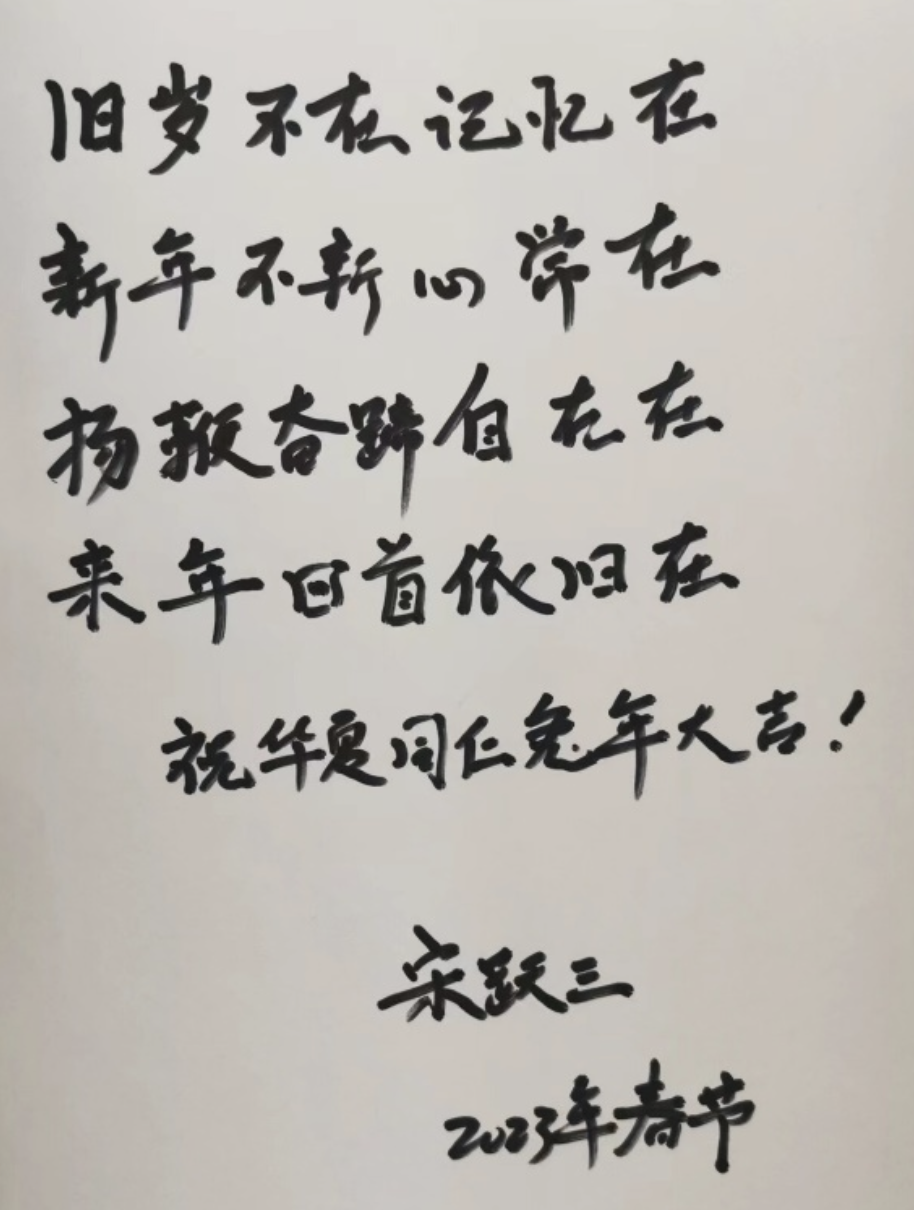 旧岁不在记忆在
新年不新心常在
扬鞭奋蹄自在在
来年回首依旧在
祝华夏同仁兔年大吉！
宋跃三
2023年春节